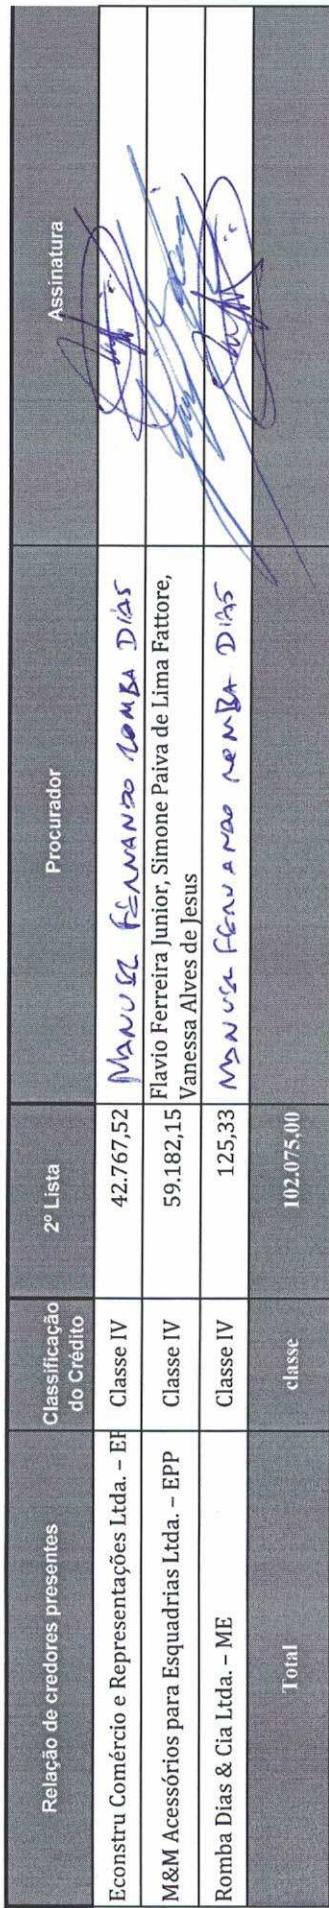 Relação de credores presentes
Classificação
do Crédito
2º Lista
Procurador
Assinatura
Econstru Comércio e Representações Ltda. – EP
Classe IV
42.767,52
MANUEL FERNANDO ROMBA DIAS
M&M Acessórios para Esquadrias Ltda. – EPP
Classe IV
59.182,15
Flavio Ferreira Junior, Simone Paiva de Lima Fattore,
Vanessa Alves de Jesus
Romba Dias & Cia Ltda. – ME
Classe IV
125,33
MANUEL FERNANDO ROMBA DIAS
Total
classe
102.075,00